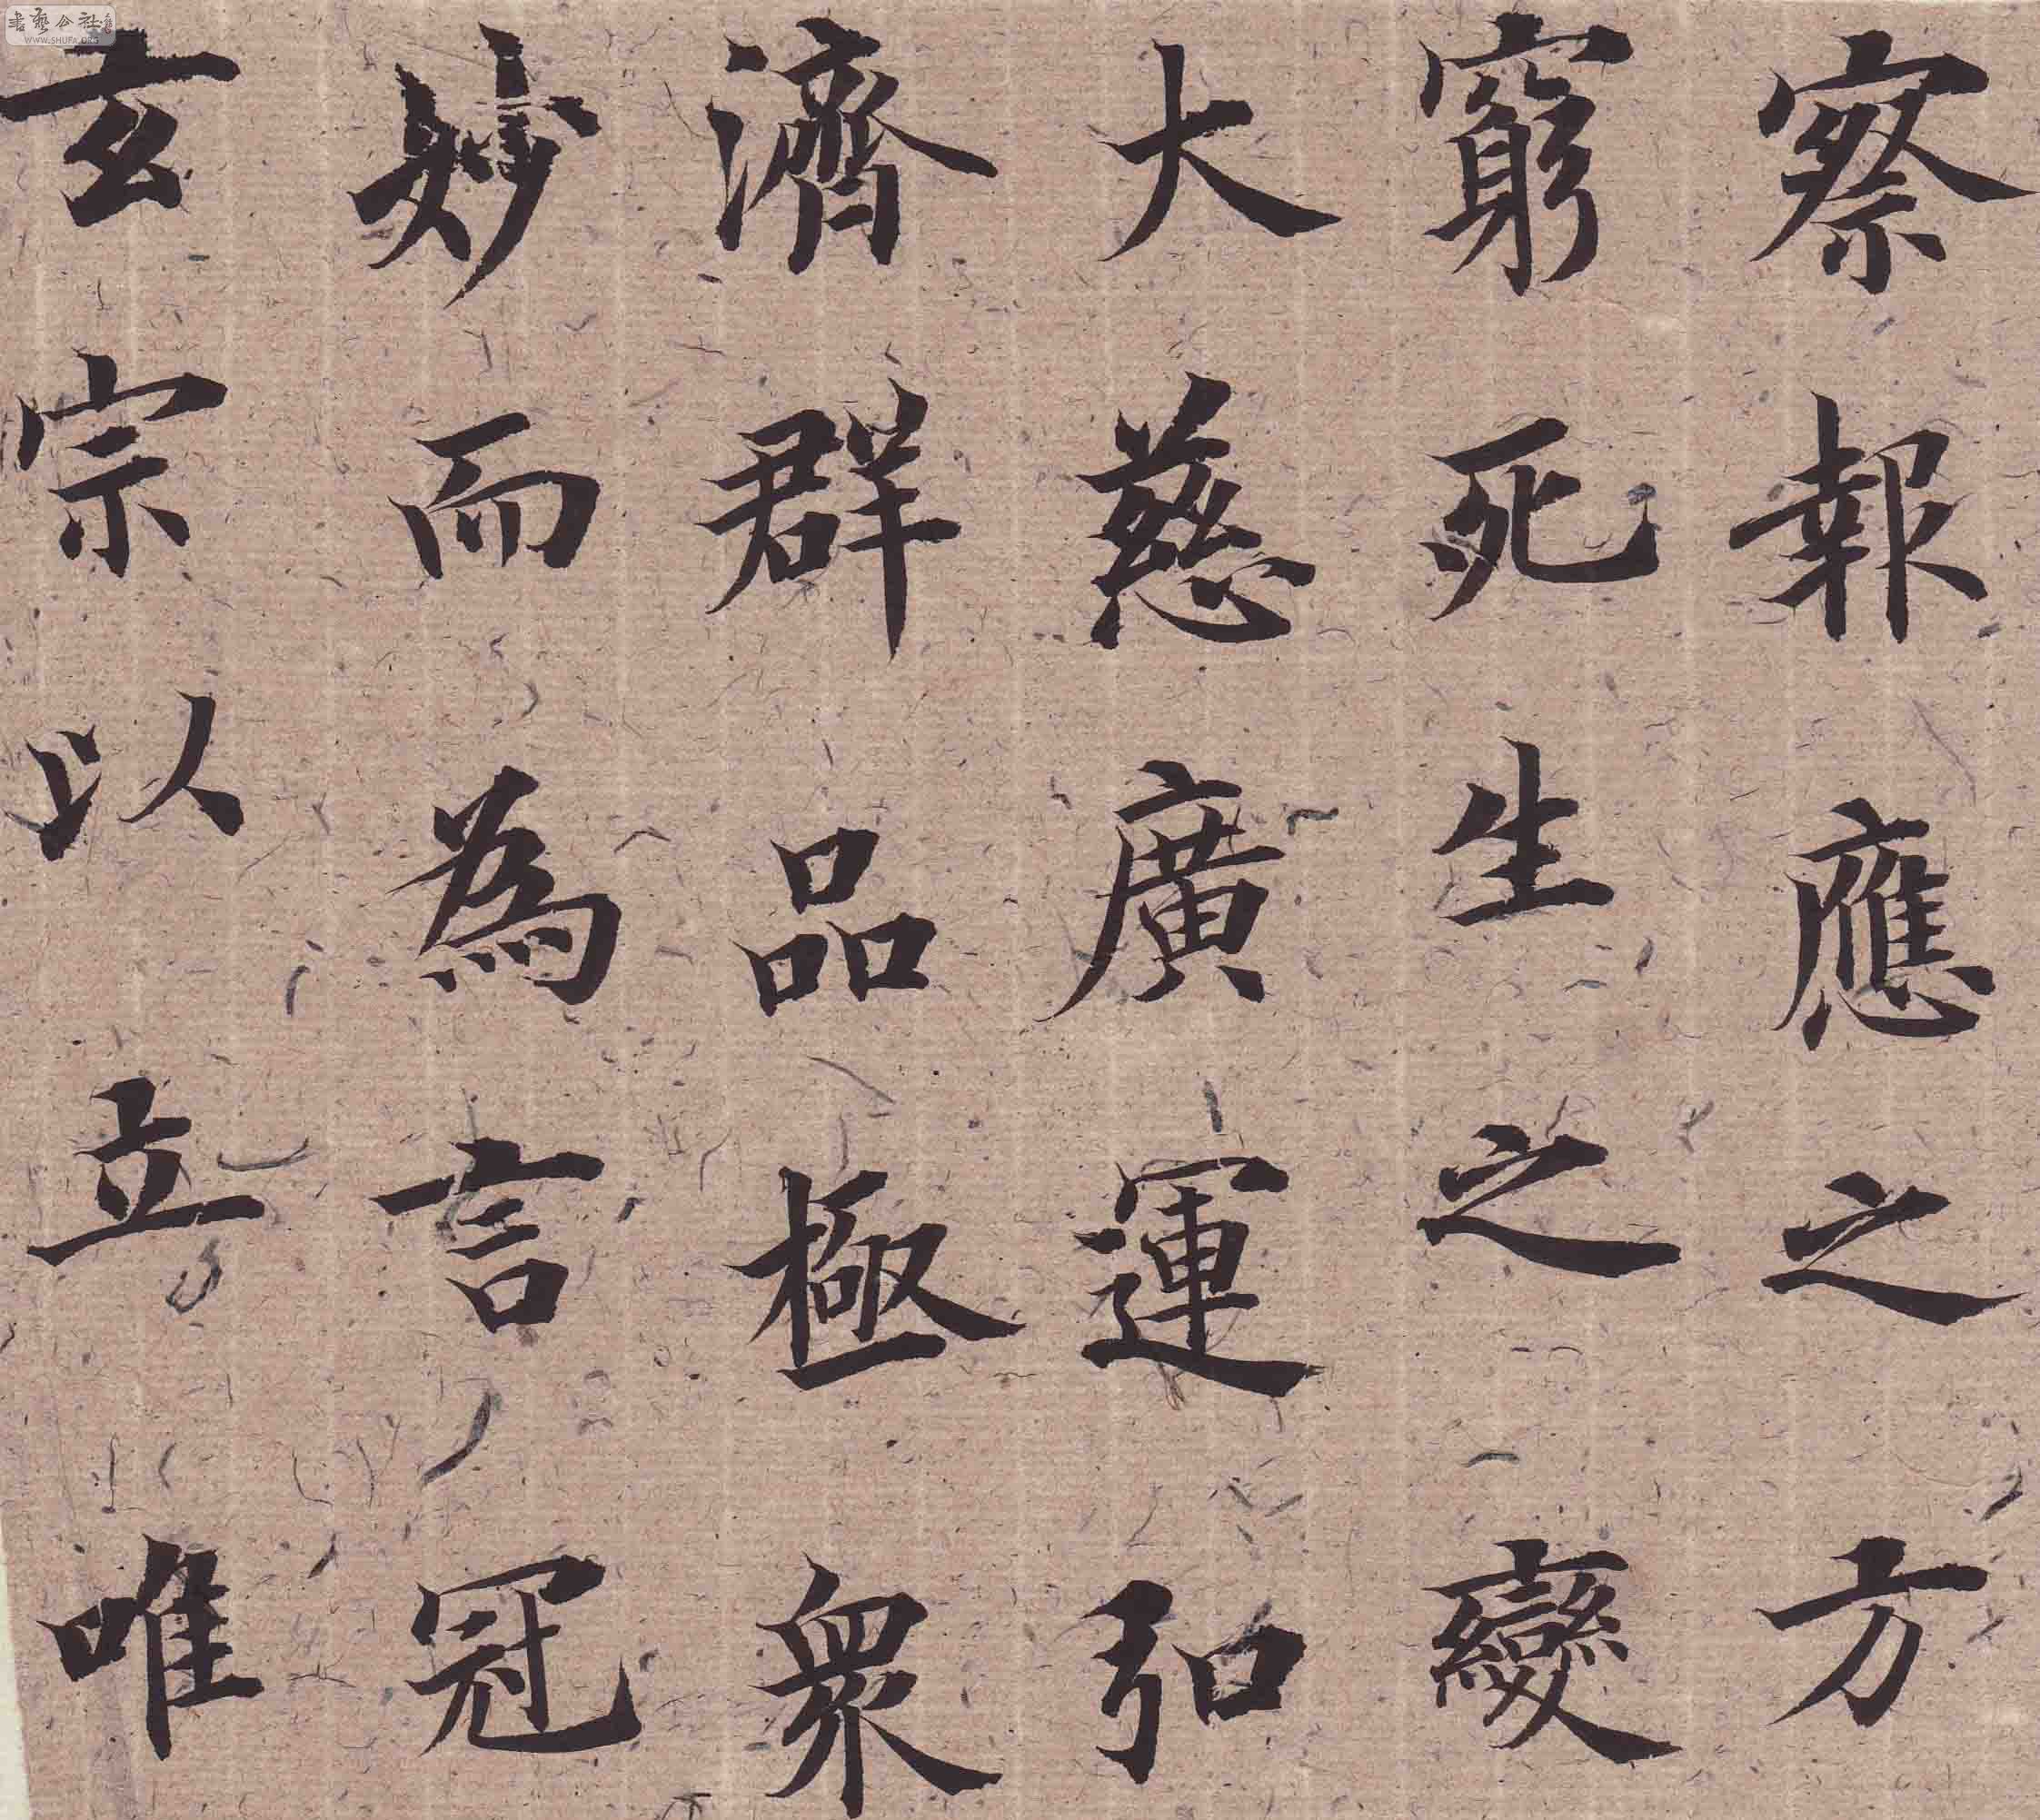 察報應之方
窮死生之變
大慈廣運弘
濟群品極衆
妙而為言冠
玄宗以立唯
書藝公社
WWW.SHUFA.ORG